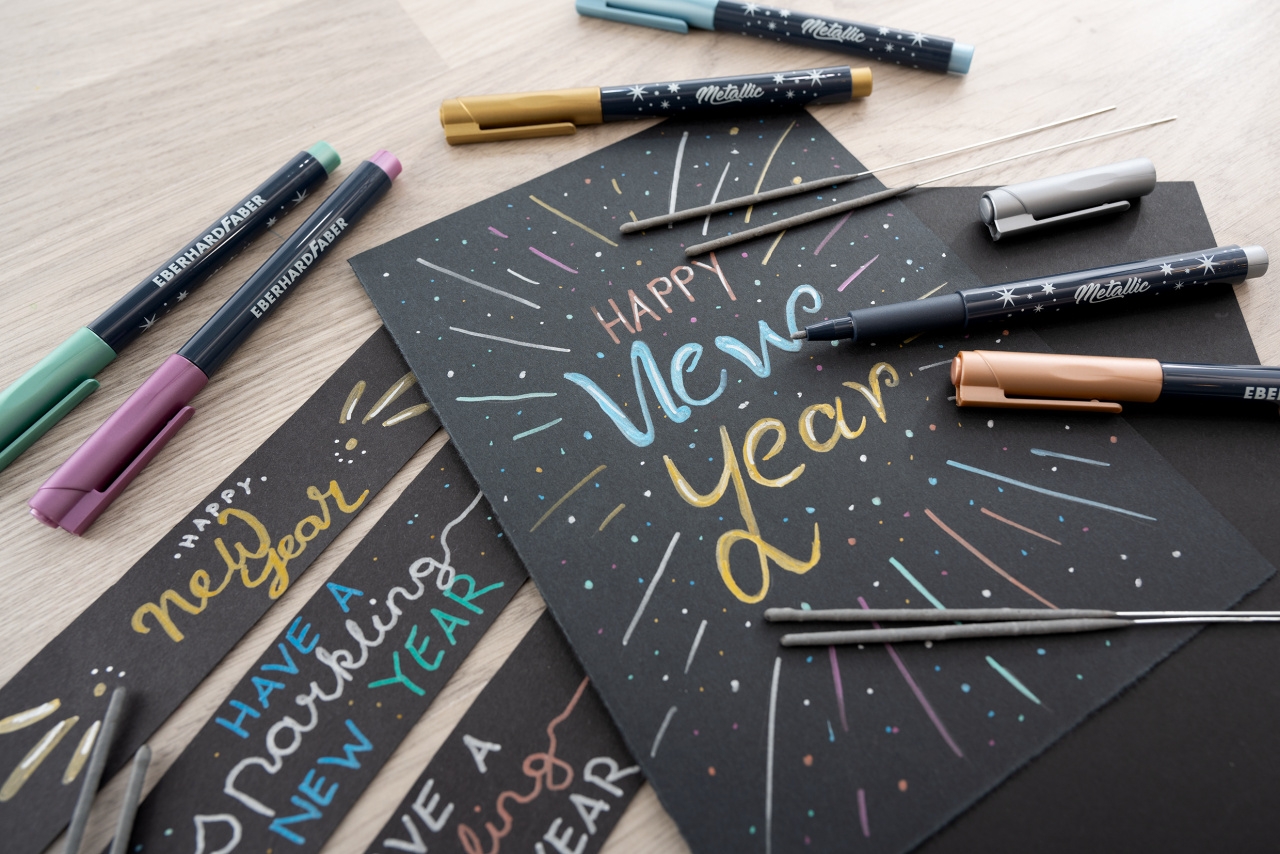 Metallic
Metallic
EBERHARD FABER
EBERHARD FABER
HAPPY
New
year
Metallic
HAPPY
new
year
HAVE A
sparkling
NEW YEAR